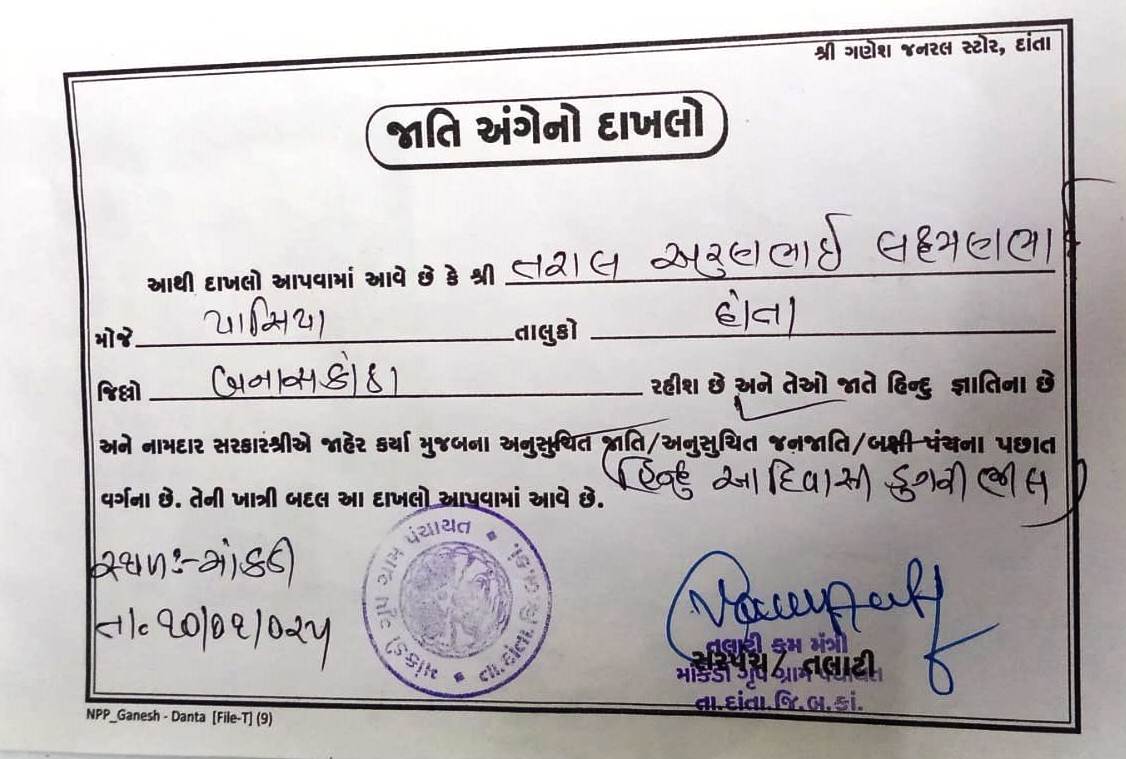 શ્રી ગણેશ જનરલ સ્ટોર, દાંતા
જાતિ અંગેનો દાખલો
આથી દાખલો આપવામાં આવે છે કે શ્રી તરાલ અરુણભાઈ લક્ષ્મણભાઈ
મોજે પાન્સિયા તાલુકો દાંતા
જિલ્લો બનાસકાંઠા રહીશ છે અને તેઓ જાતે હિન્દુ જ્ઞાતિના છે
અને નામદાર સરકારશ્રીએ જાહેર કર્યા મુજબના અનુસુચિત જાતિ/અનુસુચિત જનજાતિ/બક્ષી પંચના પછાત
વર્ગના છે. તેની ખાત્રી બદલ આ દાખલો આપવામાં આવે છે. (હિન્દુ આદિવાસી ડુંગરી ભીલ)
સ્થળઃ-માંકડી
તા. ૧૦/૦૧/૦૨૫
માંકડી ગૃપ ગ્રામ પંચાયત
તા.દાંતા. જિ.બ.કાં.
તલાટી કમ મંત્રી
સરપંચ/ તલાટી
માંકડી ગૃપ ગ્રામ પંચાયત
તા.દાંતા.જિ.બ.કાં.
NPP_Ganesh - Danta [File-T] (9)